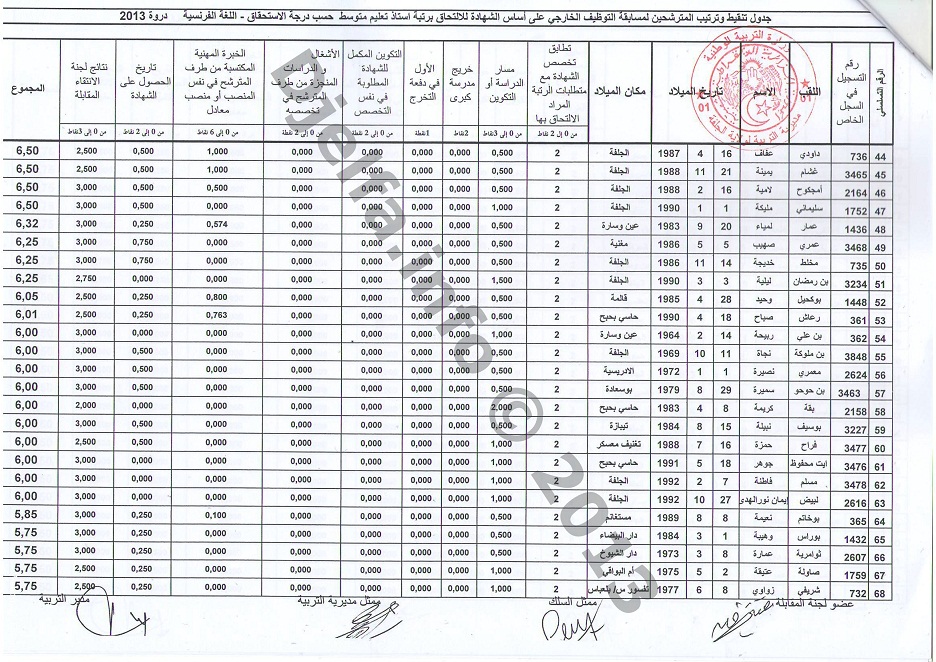 جدول تنقيط وترتيب المترشحين لمسابقة التوظيف الخارجي على أساس الشهادة للالتحاق برتبة أستاذ تعليم متوسط حسب درجة الاستحقاق - اللغة الفرنسية دروة 2013
الرقم التسلسلي
رقم التسجيل في السجل الخاص
اللقب
الاسم
تاريخ الميلاد
مكان الميلاد
تطابق تخصص الشهادة مع متطلبات الرتبة المراد الالتحاق بها من 0 إلى 2 نقطة
مسار الدراسة أو التكوين
خريج مدرسة كبرى 2نقاط
الأول في دفعة التخرج 1نقطة
التكوين المكمل للشهادة المطلوبة في نفس التخصص من 0 إلى 2 نقطة
الأشغال و الدراسات المنجزة من طرف المترشح في تخصصه من 0 إلى 2 نقطة
الخبرة المهنية المكتسبة من طرف المترشح في نفس المنصب أو منصب معادل من 0 إلى 6 نقاط
تاريخ الحصول على الشهادة من 0 إلى 2 نقاط
نتائج لجنة الانتقاء المقابلة من 0 إلى 3 نقاط
المجموع
44 736 داودي عفاف 16 4 1987 الجلفة 2 0,500 0,000 0,000 0,000 0,000 1,000 0,500 2,500 6,50
45 3465 غشام يمينة 21 11 1988 الجلفة 2 0,500 0,000 0,000 0,000 0,000 1,000 0,500 2,500 6,50
46 2164 أمجكوح لامية 16 2 1988 الجلفة 2 0,500 0,000 0,000 0,000 0,000 0,500 0,500 3,000 6,50
47 1752 سليماني مليكة 1 1 1990 الجلفة 2 1,000 0,000 0,000 0,000 0,000 0,000 0,500 3,000 6,50
48 1436 عمار لمياء 20 9 1983 عين وسارة 2 0,500 0,000 0,000 0,000 0,000 0,574 0,250 3,000 6,32
49 3468 عمري صهيب 5 5 1986 مغنية 2 0,500 0,000 0,000 0,000 0,000 0,000 0,750 3,000 6,25
50 735 مخلط خديجة 14 11 1986 الجلفة 2 0,500 0,000 0,000 0,000 0,000 0,000 0,750 3,000 6,25
51 3234 بن رمضان ليلية 3 3 1990 الجلفة 2 1,500 0,000 0,000 0,000 0,000 0,000 0,000 2,750 6,25
52 1448 بوكحيل وحيد 28 4 1985 قالمة 2 0,500 0,000 0,000 0,000 0,000 0,800 0,250 2,500 6,05
53 361 رعاش صباح 18 4 1990 حاسي بحبح 2 0,500 0,000 0,000 0,000 0,000 0,763 0,250 2,500 6,01
54 362 بن علي ربيحة 14 2 1964 عين وسارة 2 1,000 0,000 0,000 0,000 0,000 0,000 0,000 3,000 6,00
55 3848 بن ملوكة نجاة 11 10 1969 الجلفة 2 0,500 0,000 0,000 0,000 0,000 0,000 0,500 3,000 6,00
56 2624 معمري نصيرة 1 1 1972 الادريسية 2 0,500 0,000 0,000 0,000 0,000 0,000 0,500 3,000 6,00
57 3463 بن حوحو سميرة 29 8 1979 بوسعادة 2 0,500 0,000 0,000 0,000 0,000 0,000 0,500 3,000 6,00
58 2158 بقة كريمة 8 4 1983 حاسي بحبح 2 2,000 0,000 0,000 0,000 0,000 0,000 0,000 2,000 6,00
59 3227 بوسيف نبيلة 15 8 1984 تيبازة 2 0,500 0,000 0,000 0,000 0,000 0,000 0,500 3,000 6,00
60 3477 فراح حمزة 16 7 1988 تغنيف معسكر 2 1,000 0,000 0,000 0,000 0,000 0,000 0,000 3,000 6,00
61 3476 ايت محفوظ جوهر 18 5 1991 حاسي بحبح 2 1,000 0,000 0,000 0,000 0,000 0,000 0,000 3,000 6,00
62 3478 مسلم فاطنة 7 2 1992 الجلفة 2 1,000 0,000 0,000 0,000 0,000 0,000 0,000 3,000 6,00
63 2616 لبيض إيمان نورالهدى 27 10 1992 الجلفة 2 1,000 0,000 0,000 0,000 0,000 0,000 0,000 3,000 6,00
64 365 بوخاتم نعيمة 8 8 1989 مستغانم 2 0,500 0,000 0,000 0,000 0,000 0,100 0,250 3,000 5,85
65 1432 بوراس وهيبة 1 3 1984 دار البيضاء 2 0,500 0,000 0,000 0,000 0,000 0,000 0,250 3,000 5,75
66 2607 ثوامرية عمارة 8 3 1973 دار الشيوخ 2 0,500 0,000 0,000 0,000 0,000 0,000 0,250 3,000 5,75
67 1759 صاولة عتيقة 2 5 1975 أم البواقي 2 1,000 0,000 0,000 0,000 0,000 0,000 0,250 2,500 5,75
68 732 شريفي زواوي 8 6 1977 تلسور س/ بلعباس 2 1,000 0,000 0,000 0,000 0,000 0,000 0,250 2,500 5,75
عضو لجنة المقابلة ممثل السلك ممثل مديرية التربية مدير التربية
Djelfa.info © 2013